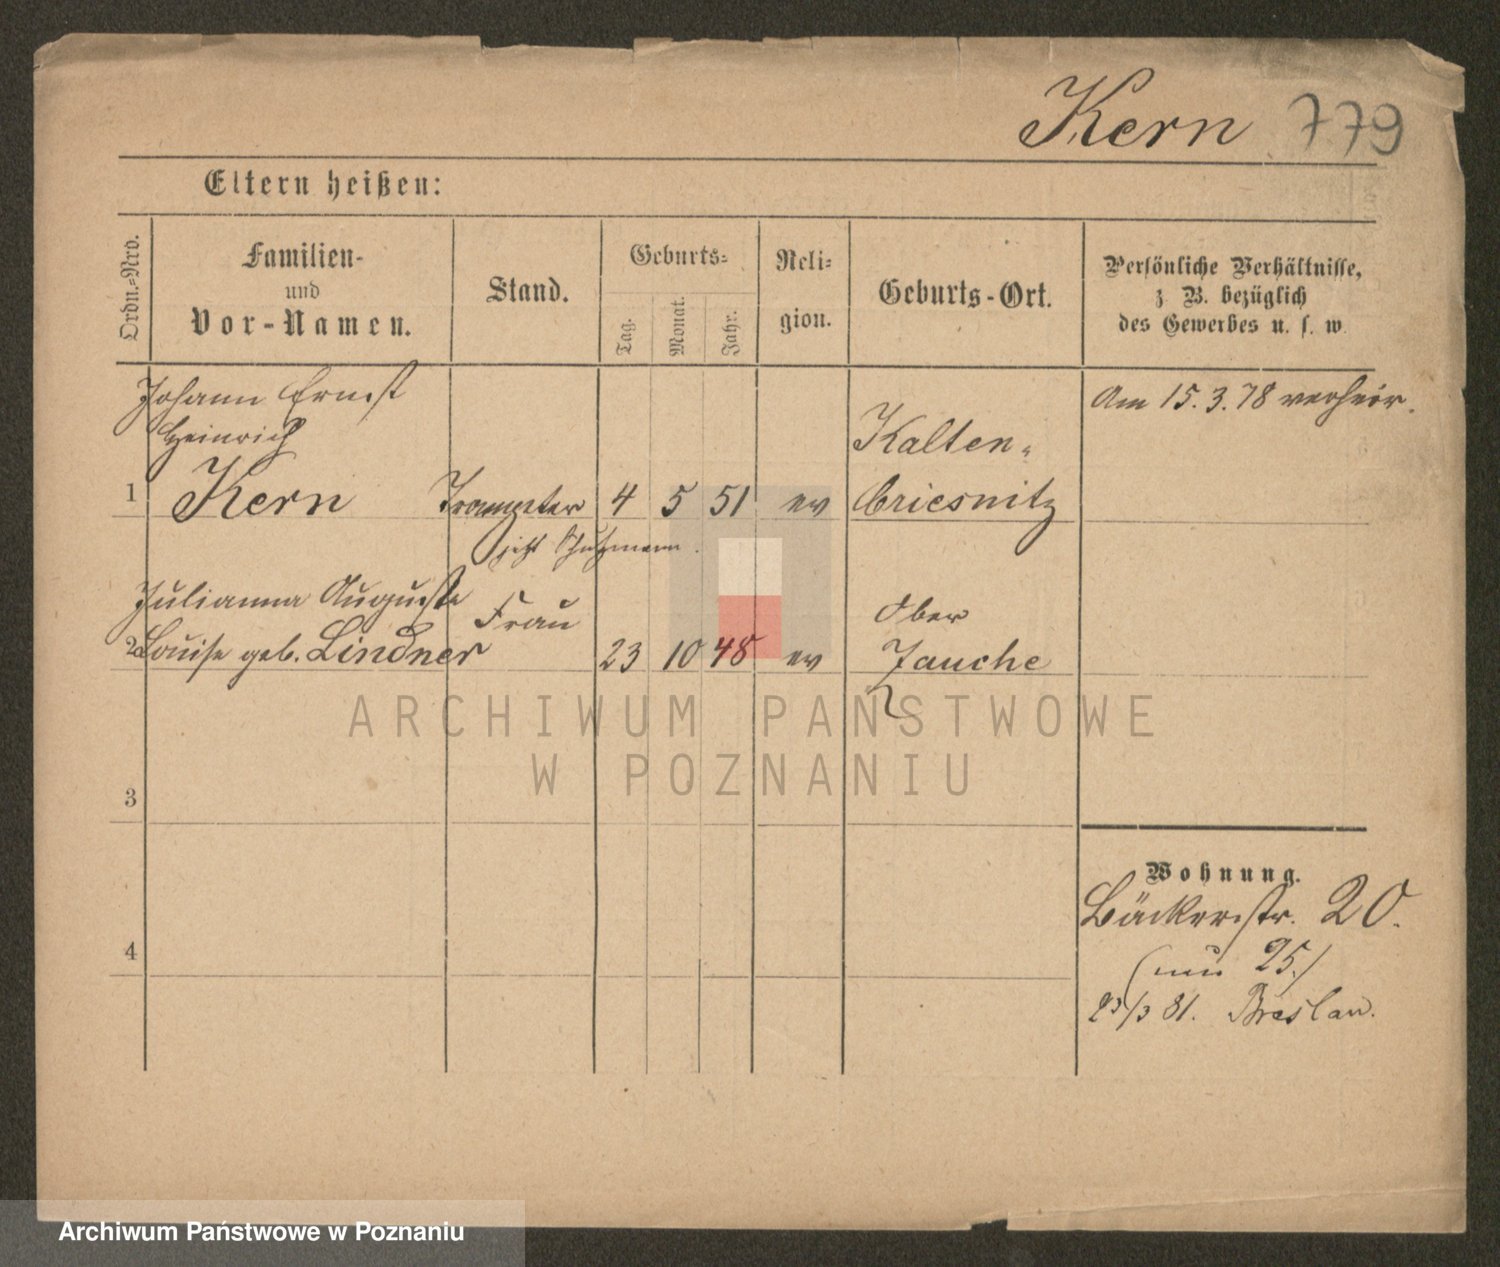 Kern 779
Eltern heißen:
Ordn.-Nro.
Familien-
und
Vor-Namen.
Stand.
Geburts-
Tag.
Monat.
Jahr.
Reli-
gion.
Geburts-Ort.
Persönliche Verhältnisse,
z B. bezüglich
des Gewerbes u. s. w.
Johann Ernst
Heinrich
1 Kern Trompeter 4 5 51 ev
Kalten-
briesnitz
Am 15.3.78 verheir.
jetzt Schutzmann.
Julianna Auguste
2 Louise geb. Lindner
Frau
23 10 48 ev
Ober
Jauche
ARCHIWUM PAŃSTWOWE
W POZNANIU
3
4
Wohnung.
Bäckerstr. 20.
(nun 25.)
23/3 81. Breslau.
Archiwum Państwowe w Poznaniu